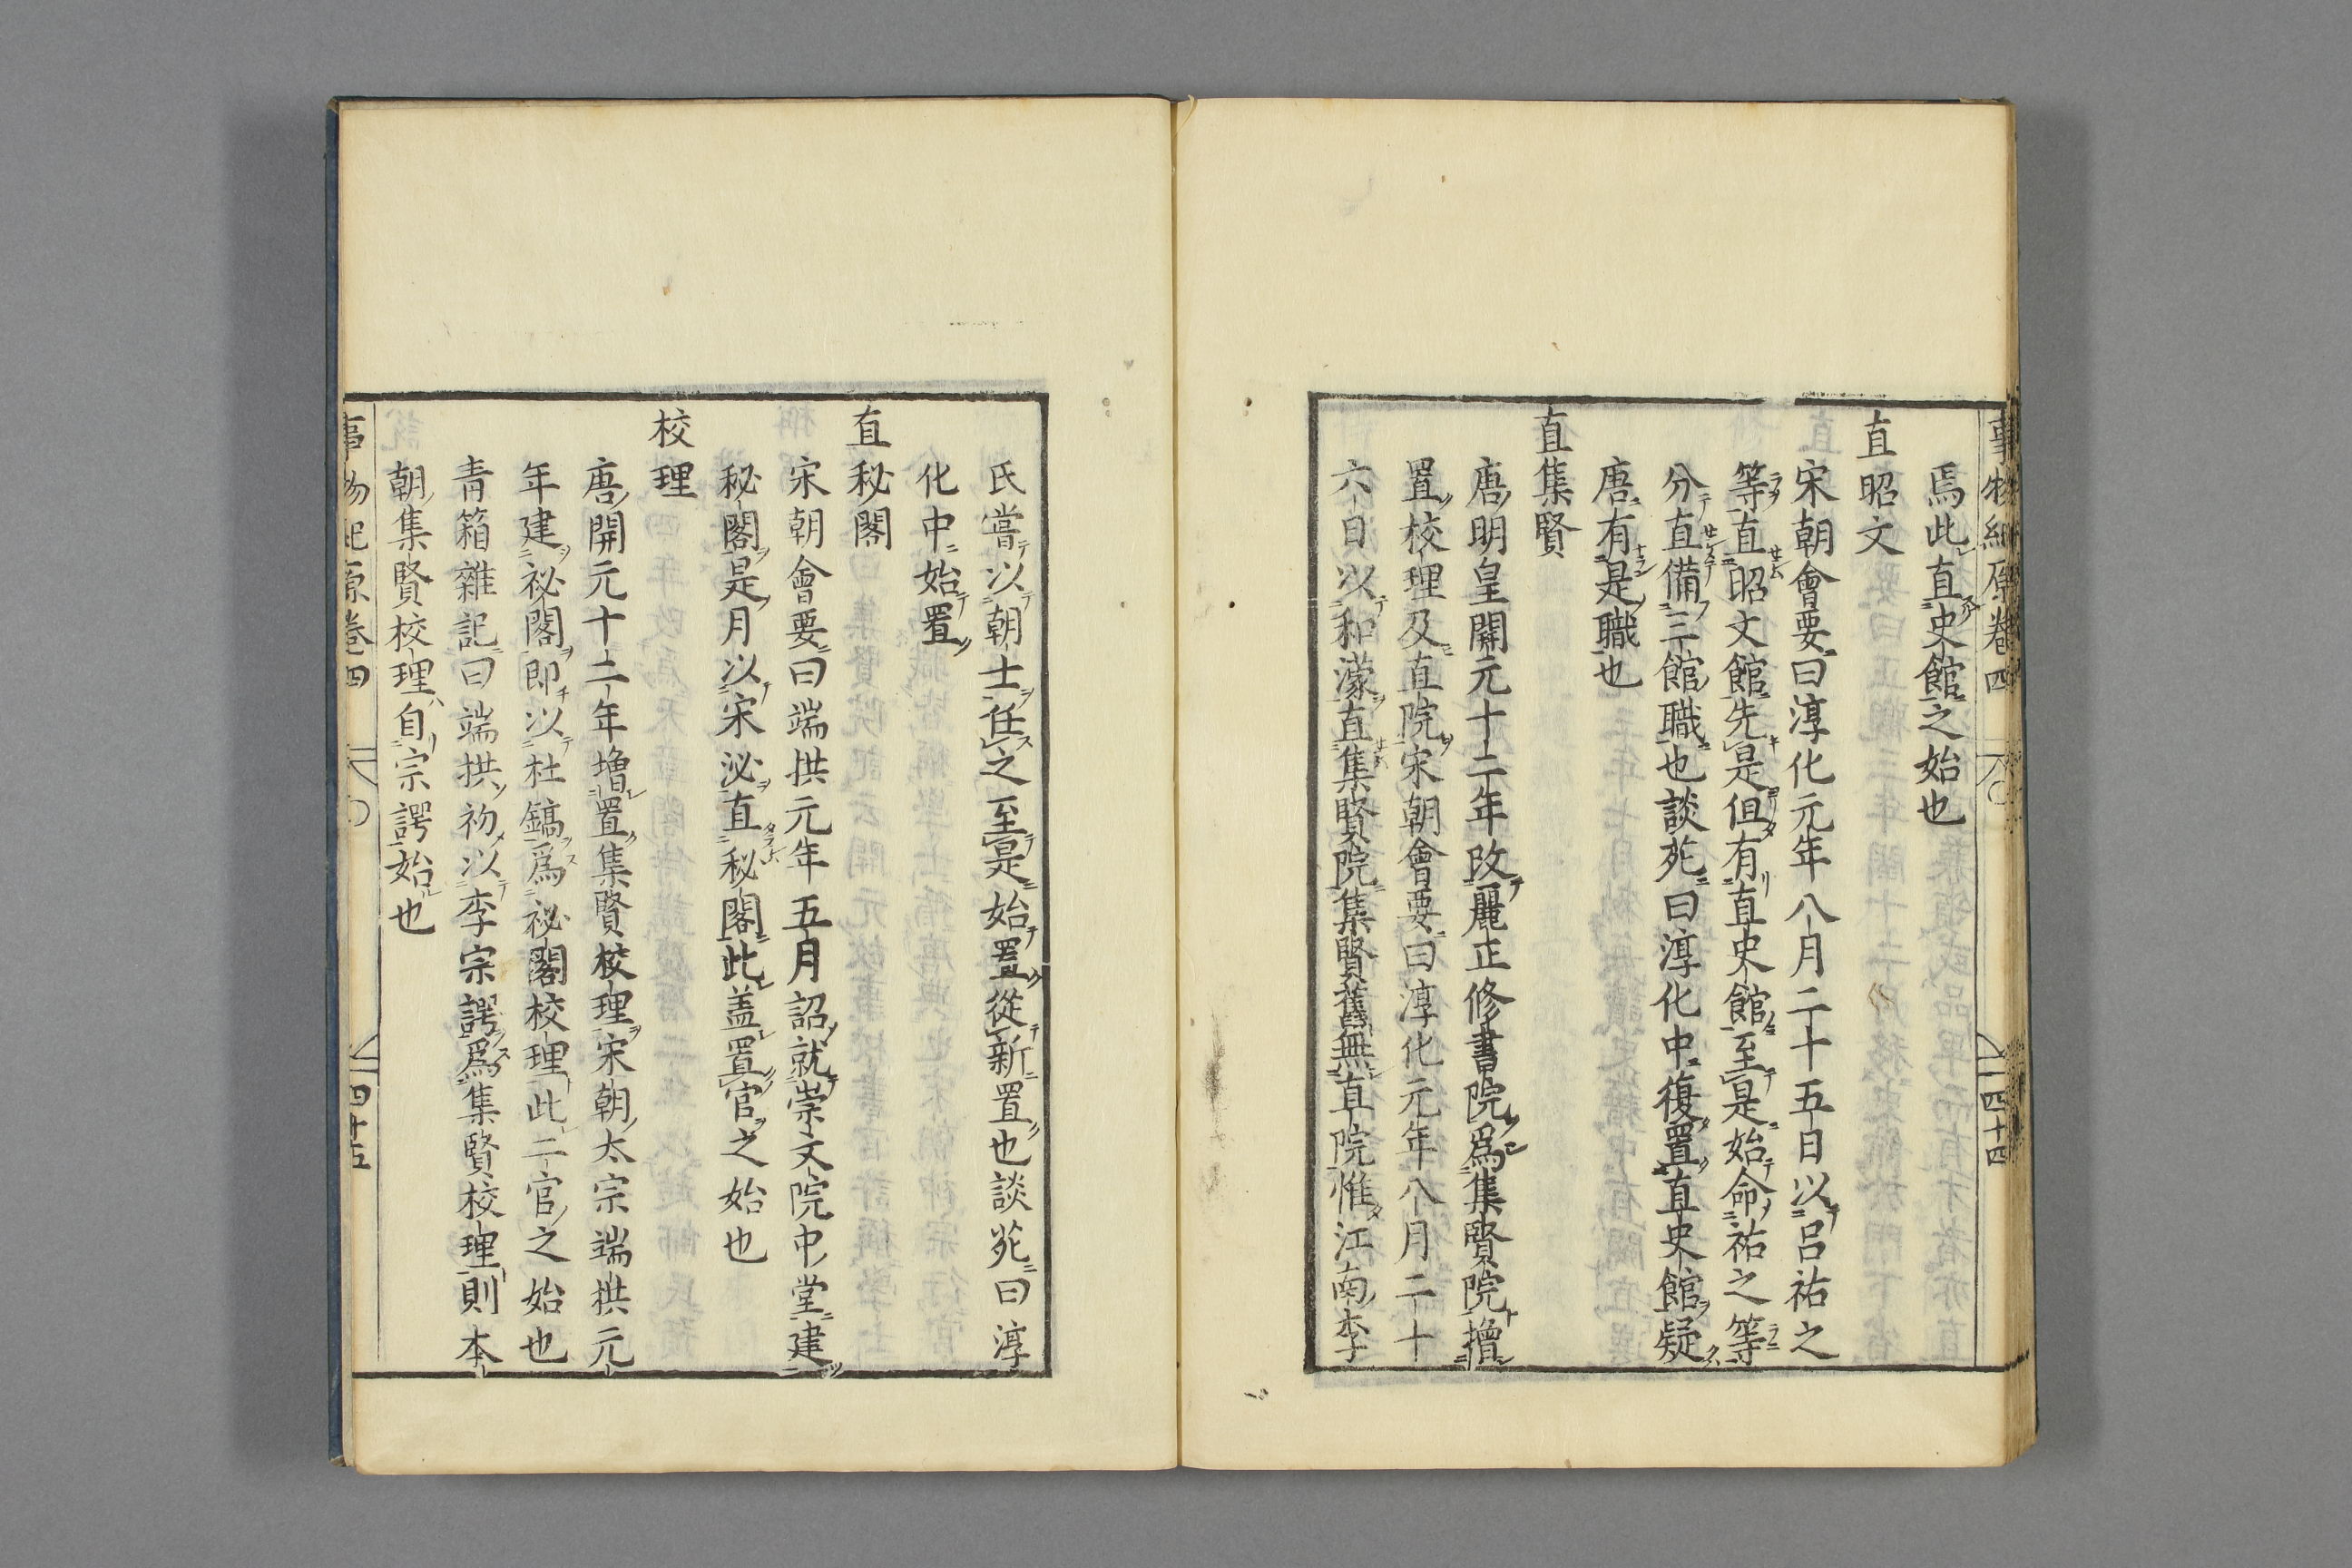 事物紀原卷四
四十四
焉此直史館之始也
直昭文
宋朝會要曰淳化元年八月二十五日以呂祐之
等直昭文館先是但有直史館至是始命祐之等
分直備三館職也談苑曰淳化中復置直史館疑
唐有是職也
直集賢
唐明皇開元十二年改麗正修書院爲集賢院增
置校理及直院宋朝會要曰淳化元年八月二十
六日以和濛直集賢院集賢舊無直院惟江南李
氏嘗以朝士任之至是始置從新置也談苑曰淳
化中始置
直秘閣
宋朝會要曰端拱元年五月詔就崇文院中堂建
秘閣是月以宋泌直秘閣此盖置官之始也
校理
唐開元十二年增置集賢校理宋朝太宗端拱元
年建祕閣即以杜鎬爲祕閣校理此二官之始也
青箱雜記曰端拱初以李宗諤爲集賢校理則本
朝集賢校理自宗諤始也
事物紀原卷四
四十五